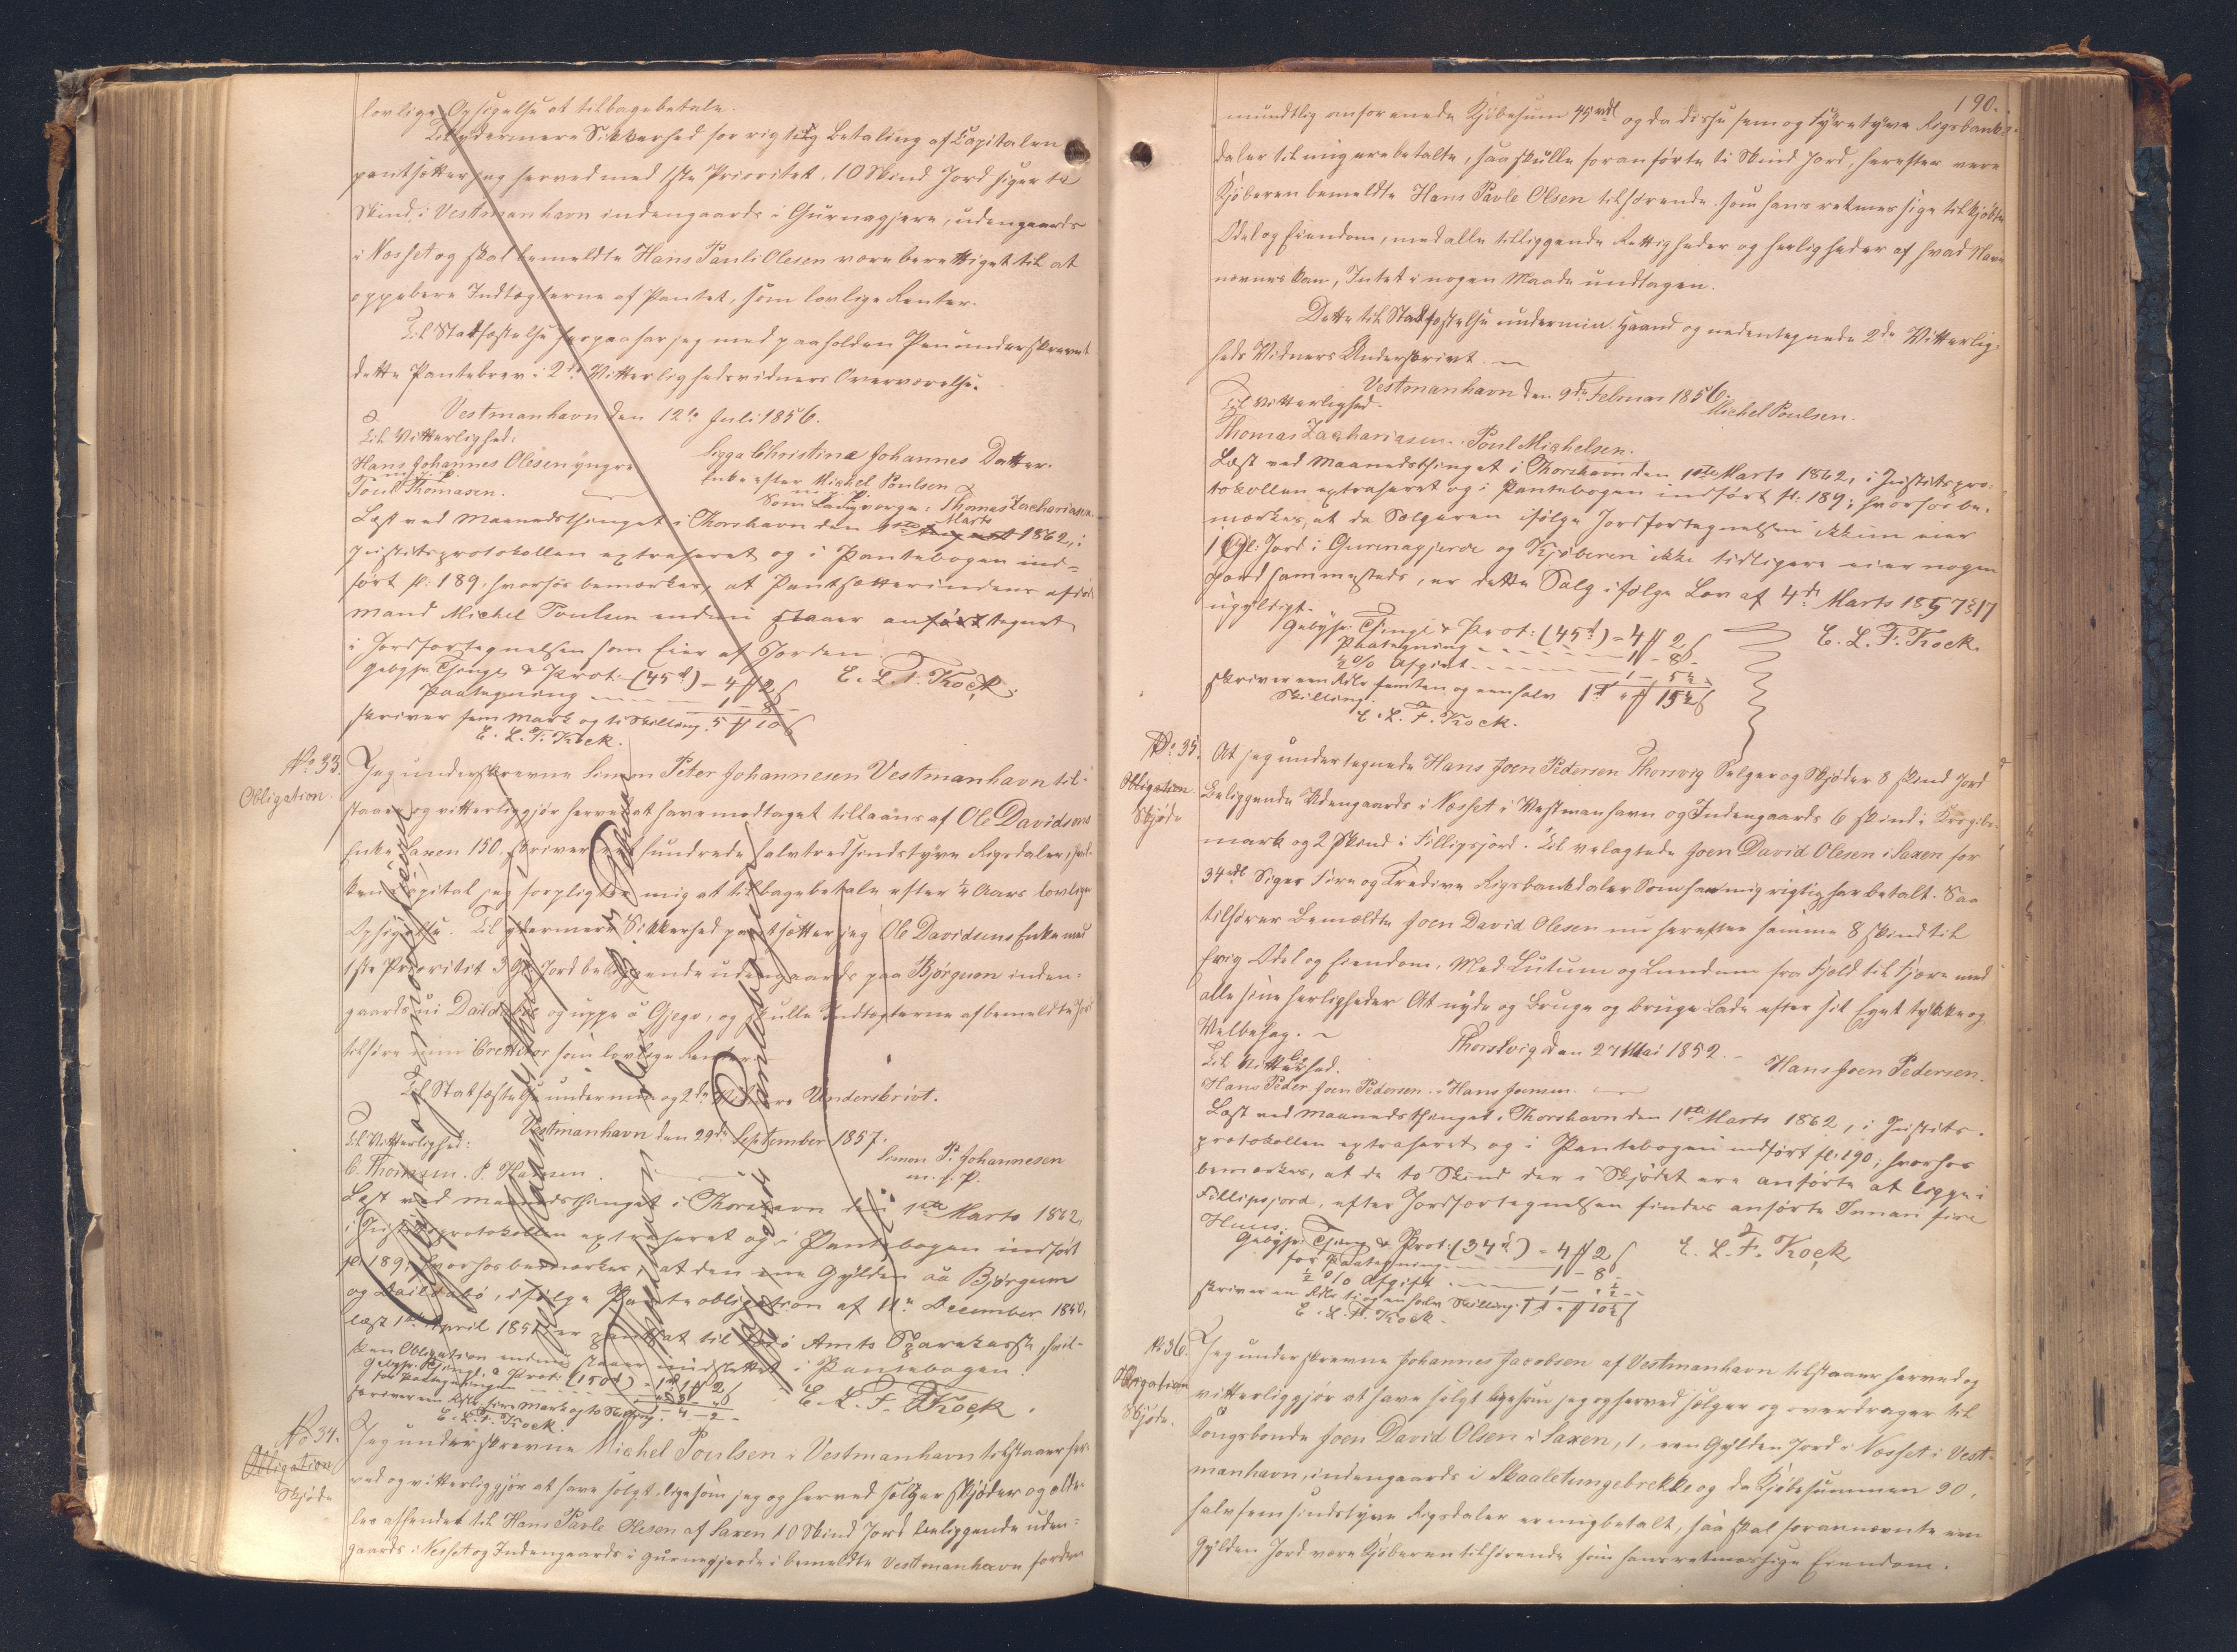 lovlige Opsigelse at tilbagebetale.
Til ydermere Sikkerhed for rigtig Betaling af Capitalen
pantsætter jeg herved med 1ste Prioritet, 10 Skind Jord siger ti
Skind i Vestmanhavn indengaards i Gurnagjere, udengaards
i Nesset og skal bemeldte Hans Pauli Olesen være berettiget til at
oppebere Indtægterne af Pantet, som lovlige Renter.
Til Stadfæstelse herpaa har jeg med paaholden Pen underskrevet
dette Pantebrev i 2de Vitterlighedsvidners Overværelse.
Vestmanhavn den 12te Juli 1856.
Til Vitterlighed:
Hans Johannes Olesen yngre
m. f. P.
Poul Thomasen.
Sigga Christine Johannes Datter.
Enke efter Michel Poulsen
m. f. P.
Som Laugværge: Thomas Zachariasen.
Læst ved Maanedsthinget i Thorshavn den 1ste August Marts 1862, i
Justitsprotokollen extraheret og i Pantebogen ind-
ført fl: 189, hvorhos bemærkes, at Pantsætterindens afdøde
Mand Michel Poulsen endnu staaer anført tegnet
i Jordfortegnelsen som Eier af Jorden.
Gebyhr. Thingl. & Prot: (45 d) - 4 ß 2 ß
Paategning - - - 1 - 8 -
skriver fem Mark og ti Skilling. 5 ß 10 ß
E. L. F. Kock.
E. L. F. Kock.
No. 33.
Obligation.
Jeg underskrevne Simon Peter Johannesen Vestmanhavn til-
staaer og vitterliggjør herved at have modtaget tillaans af Ole Davidsens
Enke Saxen 150, skriver et hundrede halvtredsindstyve Rigsdaler, hvil-
ken Capital jeg forpligter mig at tilbagebetale efter ¼ Aars lovlige
Opsigelse. Til ydermere Sikkerhed pantsætter jeg Ole Davidsens Enke med
1ste Prioritet 3 Gl. Jord beliggende udengaards paa Bjørgum inden-
gaards ui og uppe a Gjegv, og skulle Indtægterne af bemeldte Jord
tilhøre min Creditor som lovlige Renter.
Til Stadfæstelse under min og 2de Vidners Underskrivt.
Vestmanhavn den 29de September 1857.
Til Vitterlighed:
C. Thomsen. P. Hansen.
Simon P. Johannesen
m. f. P.
Læst ved Maanedsthinget i Thorshavn den 1ste Marts 1862,
i Justitsprotokollen extraheret og i Pantebogen indført
fl. 189, hvorhos bemærkes, at den ene Gylden aa Bjørgum
og, ifølge Panteobligation af 11te December 1850,
læst 1ste April 1851 er pantsat til Færø Amts Sparekasse, hvil-
ken Obligation endnu staaer uudslettet i Pantebogen.
Gebyhr. Thingl. & Prot: (150 d) - 1 d 1 ß 2 ß
for Paategningen
skriver en Rdlr. fire Mark og to Skilling
E. L. F. Kock.
E. L. F. Kock.
No. 34.
Obligation
Skjøde
Jeg underskrevne Michel Poulsen i Vestmanhavn tilstaaer her-
ved og vitterliggjør at have solgt, ligesom jeg og herved sælger skjøder og aldeles
afhender til Hans Pavle Olesen af Saxen 10 Skind Jord beliggende uden-
gaards i Nesset og Indengaards i gurnegjerde i bemeldte Vestmanhavn for den
190.
mundtlig anforenede Kjøbesum 45 rdl og da disse fem og fyretyve Rigsbank-
daler til mig ere betalte, saa skulle foranførte ti Skind Jord, herefter være
Kjøberen bemeldte Hans Pavle Olsen tilhørende som hans retmessige tilkjøbte
Odel og Eiendom, med alle tilliggende Rettigheder og herligheder af hvad Navn
nævnes kan, Intet i nogen Maade undtagen.
Dette til Stadfæstelse under min Haand og nedentegnede 2de Vitterlig-
heds Vidners Underskrivt.
Vestmanhavn den 9de Februar 1856.
Til Vitterlighed.
Michel Poulsen.
Thomas Zachariasen. Poul Michelsen.
Læst ved Maanedsthinget i Thorshavn den 1ste Marts 1862, i Justitspro-
tokollen extraheret og i Pantebogen indført fl. 189; hvorhos be-
mærkes, at da Sælgeren ifølge Jordfortegnelsen ikkun eier
1 Gl: Jord i Gurnagjerde og Kjøberen ikke tidligere eier nogen
Jord sammesteds, er dette Salg ifølge Lov af 4de Marts 1857 § 17
ugyldigt.
Gebyhr. Thingl & Prot: (45 d) - 4 ß 2 ß
Paategning - - - 1 - 8 -
½ % Afgivt - - - 1 - 5½
skriver een Rdlr. femten og een halv Skilling. 1 d " ß 15½ ß
E. L. F. Kock.
E. L. F. Kock.
No. 35.
Obligation
Skjøde
At jeg undertegnede Hans Joen Pedersen Thorsvig Selger og Skjøder 8 skind Jord
Beliggende Udengaards i Nesset i Westmanhavn og Indengaards 6 skind i
mark og 2 Skind i Fillipsjord. Til velagtede Joen David Olesen i Saxen for
34 rdl Siger Fire og Tredive Rigsbankdaler Som han mig rigtig har betalt. Saa
tilhører Bemældte Joen David Olesen nu herefter samme 8 skind til
Evig Odel og Eiendom, Med Lutum og Lundum fra Fjeld til Fjære med
alle sine herligheder At nyde og Bruge og bruge Lade efter sit Eget tykke og
Velbehag.
Thorsvig den 27 Mai 1852.
Til Vitterlighed.
Hans Joen Pedersen.
Hans Peder Joen Pedersen. Hans Joensen.
Læst ved Maanedsthinget i Thorshavn den 1ste Marts 1862, i Justits-
protokollen extraheret og i Pantebogen indført fl. 190; hvorhos
bemærkes, at de to Skind der i Skjødet ere anførte at ligge i
Fillipsjord, efter Jordfortegnelsen findes anførte Innan fire
Huus.
Gebyhr. Thingl & Prot: (34 d) - 4 ß 2 ß
for Paategning - - - 1 - 8
½ % Afgift
skriver en Rdlr ti og en halv Skilling. 1 d " ß 10½ ß
E. L. F. Kock.
E. L. F. Kock
No. 36.
Obligation
Skjøde.
Jeg underskrevne Johannes Jacobsen af Vestmanhavn tilstaaer herved og
vitterliggjør at have solgt ligesom jeg og herved sælger og overdrager til
Kongsbonde Joen David Olsen i Saxen, 1, een Gylden Jord i Nesset i Vest-
manhavn, indengaards i Skaaletungebrekke og da Kjøbesummen 90,
halvfemsindstyve Rigsdaler er mig betalt, saa skal forannevnte een
Gylden Jord være Kjøberen tilhørende som hans retmæssige Eiendom.